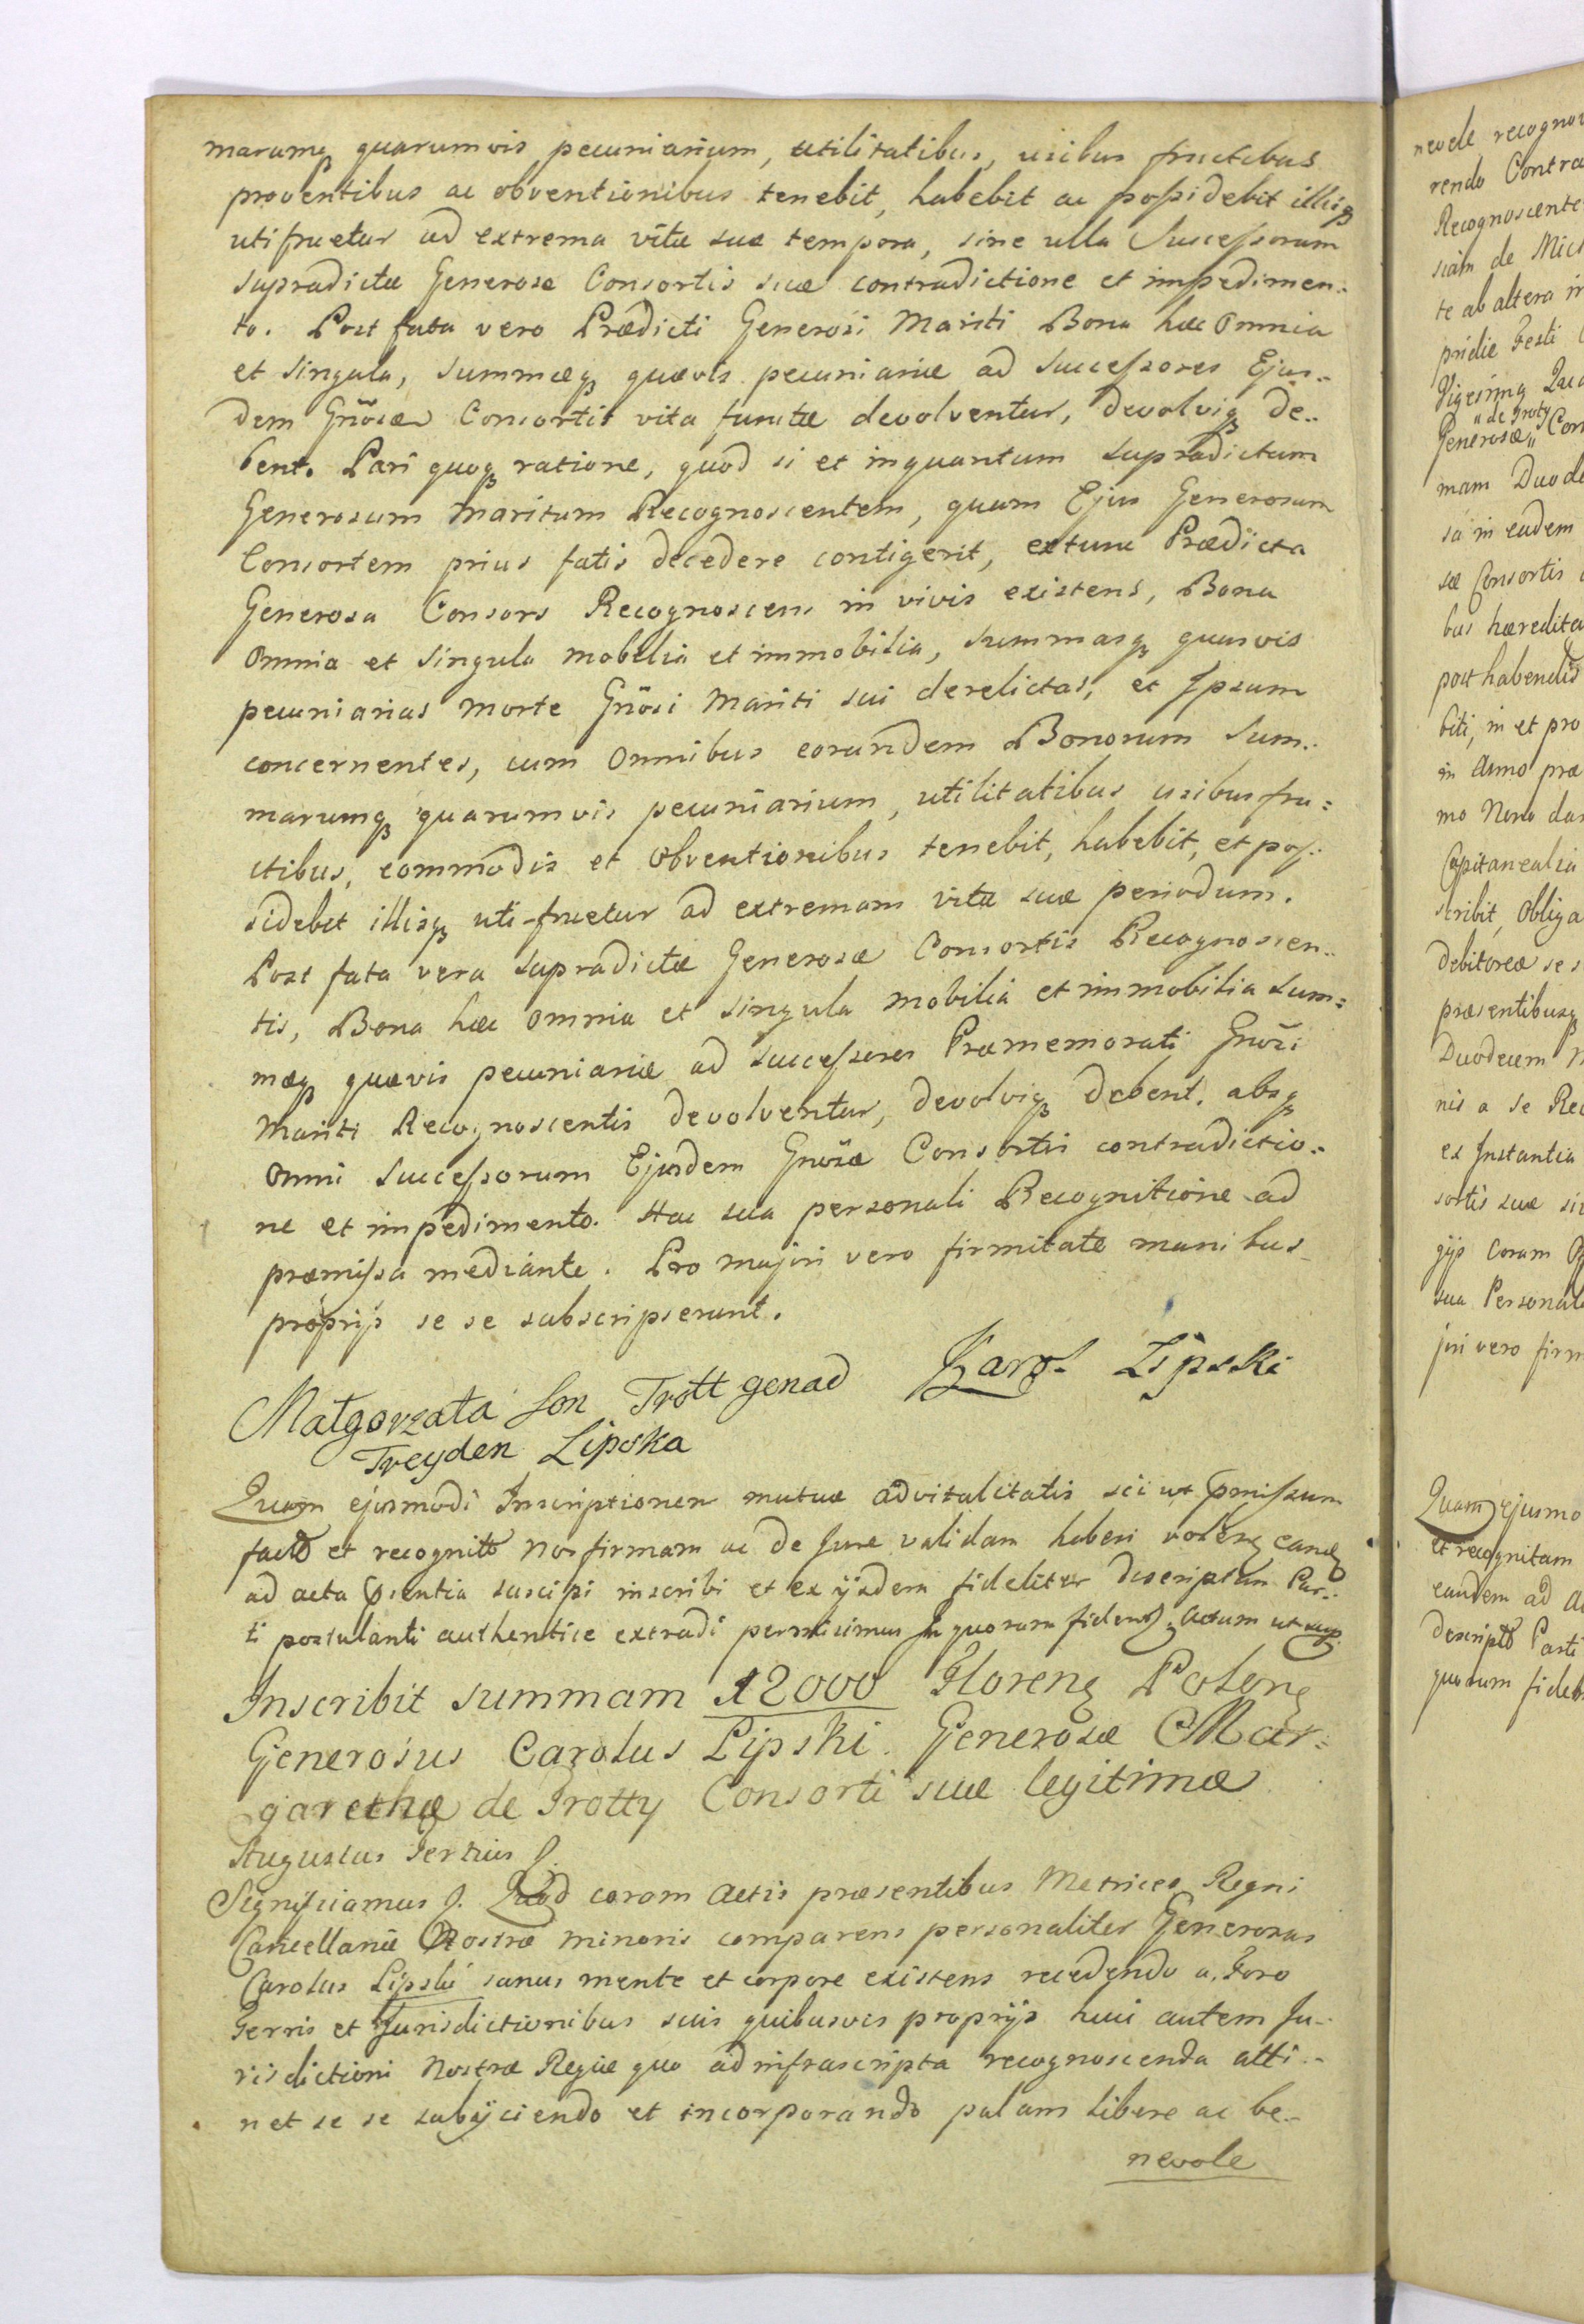 marumq quarumvis pecuniarium, utilitatibus, usibus fructibus
proventibus ac obventionibus tenebit, habebit ac possidebit illisq
utifruetur ad extrema vitæ suæ tempora, sine ulla Successorum
supradictæ Generosæ Consortis suæ contradictione et impedimen=
to. Post fata vero Prædicti Generosi Mariti Bona hæc omnia
et singula, summæq quævis pecuniariæ ad successores Ejus=
dem Gnõsæ Consortis vita functæ devolventur, devolviq de=
bent. Pari quoq ratione, quod si et inquantum supradictum
Generosum Maritum Recognoscentem, quam Ejus Generosam
Consortem prius fatis decedere contigerit, extunc Prædicta
Generosa Consors Recognoscens in vivis existens, Bona
omnia et singula mobilia et immobilia, summasq quasvis
pecuniarias morte Gnõsi Mariti sui derelictas, et Ipsum
concernentes, cum omnibus eorundem Bonorum Sum=
marumq quarumvis pecuniarium, utilitatibus usibus fru=
ctibus, commodis et obventionibus tenebit, habebit, et pos=
sidebit illisq uti-fruetur ad extremam vitæ suæ periodum.
Post fata vera supradictæ Generosæ Consortis Recognoscen=
tis, Bona hæc omnia et singula mobilia et immobilia sum=
mæq quævis pecuniariæ ad successores Præmemorati Gnõsi
Mariti Recognoscentis devolventur, devolviq debent, absq
omni Successorum Ejusdem Gnõsæ Consortis contradictio=
ne et impedimento. Hac sua personali Recognitione ad
præmissa mediante. Pro majori vero firmitate manibus
proprijs se se subscripserunt.
Karol Lipski
Małgorzata fon Trott genad
Treyden Lipska
Quam ejusmodi Inscriptionem mutuæ advitalitatis sic ut pmissum
facto et recognito nos firmam ac de Jure validam haberi volen eand
ad acta psentia suscipi inscribi et ex ijsdem fideliter descriptam Par=
ti postulanti authentice extradi permisimus In quorum fidem. Actum ut sup.
Inscribit summam 12000 Floren Polon
Generosus Carolus Lipski Generosæ Mar=
garethæ de Trotty Consorti suæ legitimæ
Augustus Tertius
Significamus Quod coram Actis præsentibus Metrices Regni
Cancellariæ Nostræ minoris comparens personaliter Generosus
Carolus Lipski sanus mente et corpore existens recedendo a Foro
Terris et Jurisdictionibus suis quibusvis proprijs huic autem Ju=
risdictioni Nostræ Regiæ quo ad infrascripta recognoscenda atti=
net se se subijciendo et incorporando palam libere ac be=
nevole
nevole recogno
rendo Contra
Recognoscente
te ab altera
pridie Festi
Vigesima
de Troty
Generosæ Con
mam Duode
sa in eadem
sæ Consortis
bus hæredita
post habendis
biti, in et pro
in Anno præ
mo Nono
Capitanealia
scribit, obliga
præsentibusq
Duodecem
nis a se Rec
ex Instantia
sortis suæ
coram
sua Personal
jori vero firm
Quam ejusmo
et recognitam
eandem ad
Parti
quorum fidem